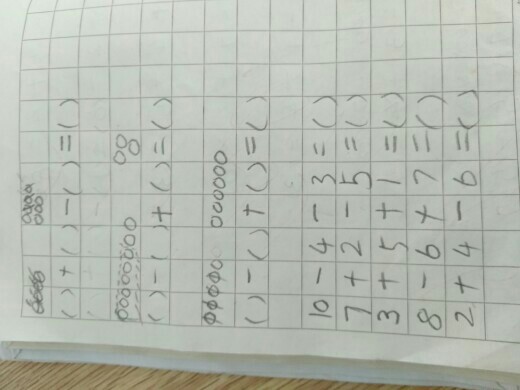 ( ) + ( ) - ( ) = ( )
( ) - ( ) + ( ) = ( )
( ) - ( ) + ( ) = ( )
10 - 4 - 3 = ( )
7 + 2 - 5 = ( )
3 + 5 + 1 = ( )
8 - 6 + 7 = ( )
2 + 4 - 6 = ( )